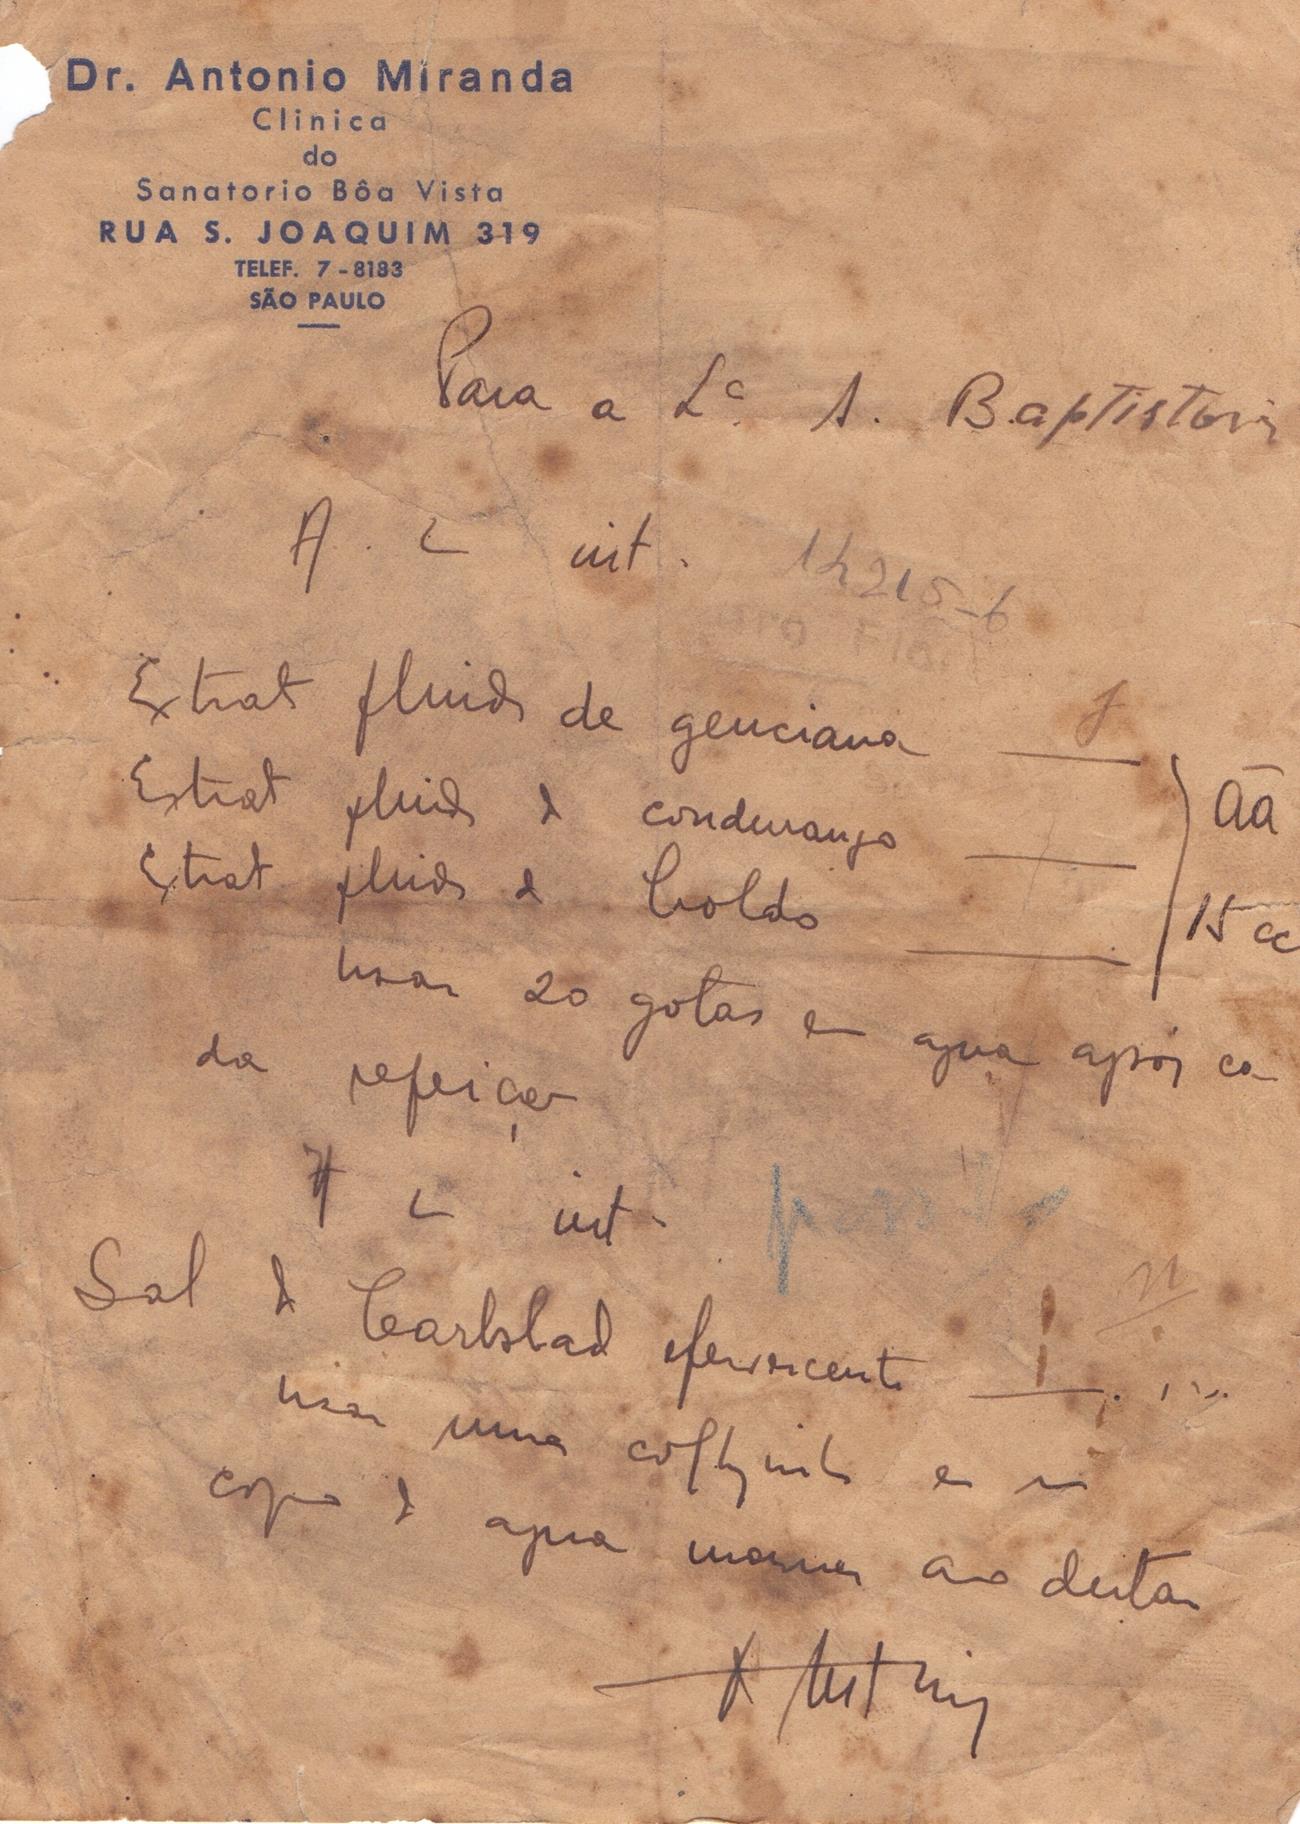 Dr. Antonio Miranda
Clinica
do
Sanatorio Bôa Vista
RUA S. JOAQUIM 319
TELEF. 7-8183
SÃO PAULO
Para a A. Baptistoni
int. 14215-6
Extrat fluido de genciana
Extrat fluido de condurango āā
Extrat fluido de boldo 15 cc
usar 20 gotas em agua após ca
da refeição
int.
Sal de Carlsbad efervescente
usar uma em um
copo de agua morna ao deitar